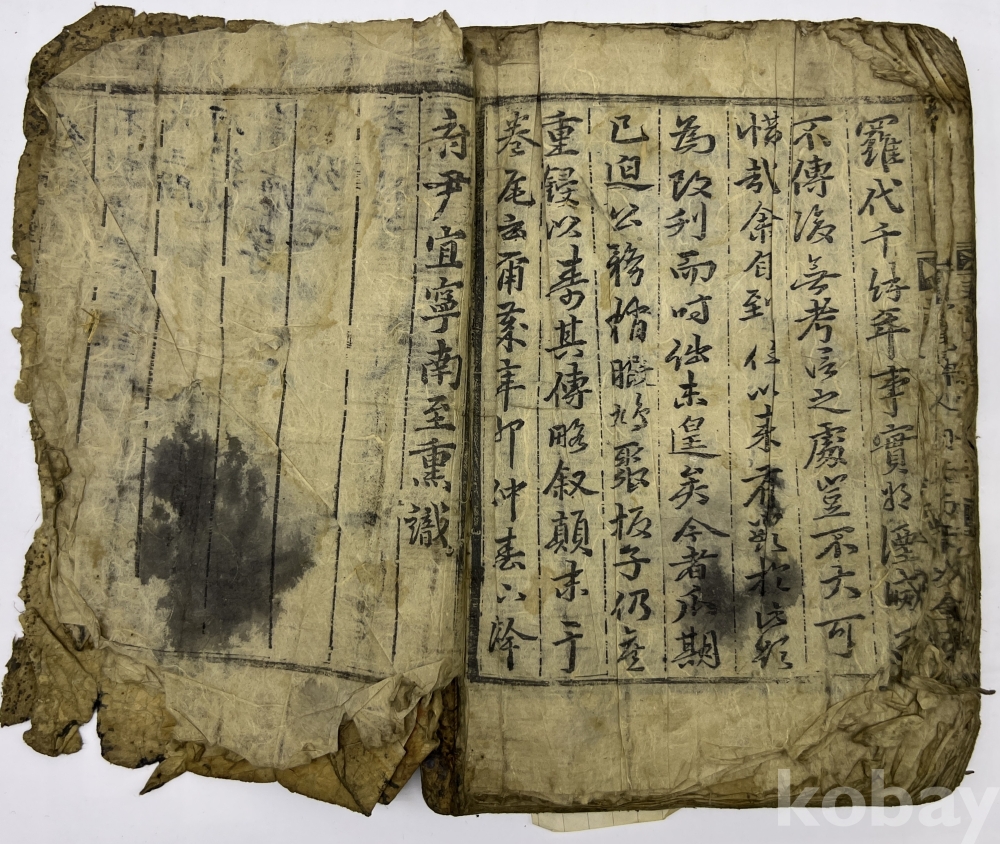 羅代千餘年事實將湮滅
不傳後無考信之處豈不大可
惜哉余自到任以來於此
為改刊而時詘未遑矣今者瓜期
已迫公務稍暇鳩聚板子仍
重鋟以壽其傳略叙顛末于
卷尾云爾歲辛卯仲春下澣
府尹宜寧南至熏識
kobay